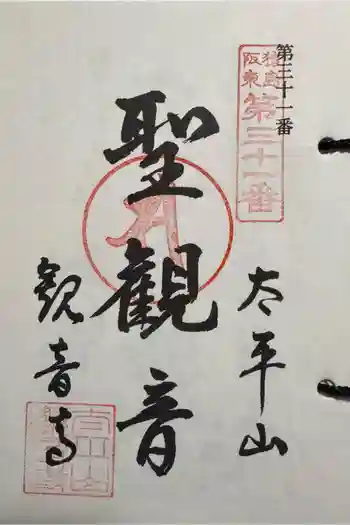 第三十一番
猿島
阪東
第三十一番
太平山
聖観音
観音寺